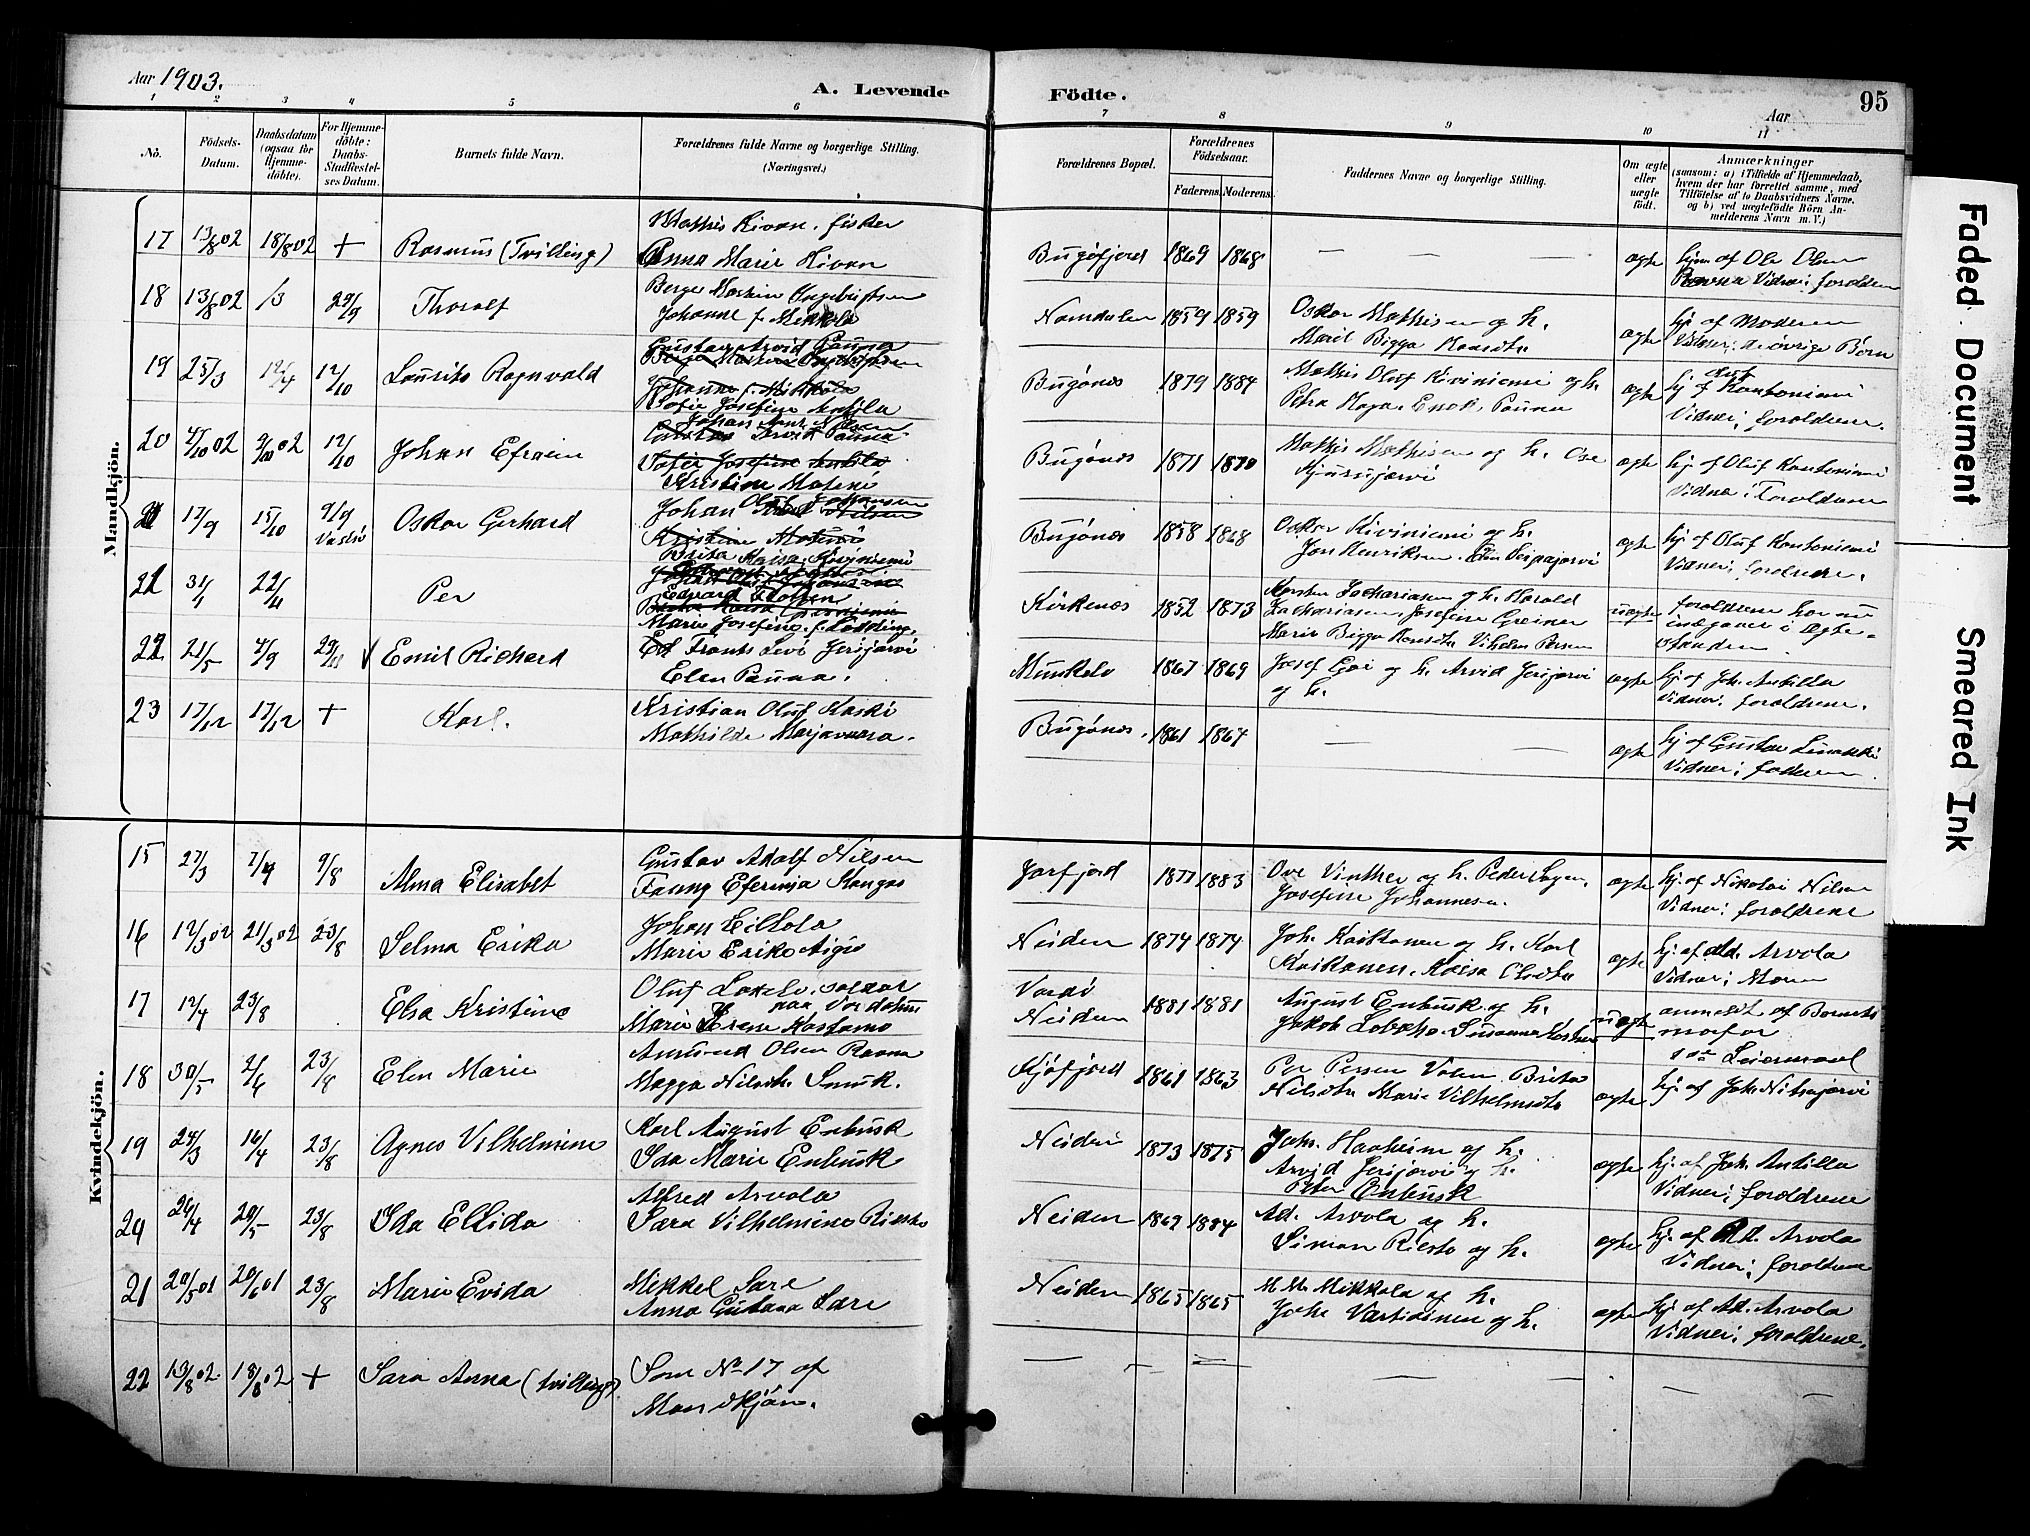 Aar 1903.
A. Levende
Födte.
Aar
95
1 2 3 4 5 6 7 8 9 10 11
No.
Födsels-
Datum.
Daabsdatum
(ogsaa for
Hjemme-
döbte).
For Hjemme-
döbte:
Daabs-
Stadfæstel-
ses Datum.
Barnets fulde Navn.
Forældrenes fulde Navne og borgerlige Stilling.
(Næringsvei.)
Forældrenes Bopæl.
Forældrenes
Födselsaar.
Faderens. Moderens.
Faddernes Navne og borgerlige Stilling.
Om ægte
eller
uægte
födt.
Anmærkninger
(saasom: a) i Tilfælde af Hjemmedaab,
hvem der har forrettet samme, med
Tilföielse af to Daabsvidners Navne,
og b) ved uægtefödte Börn An-
melderens Navn m. V.)
Mandkjön.
17 13/8 02 18/8 02 + Rasmus (Tvilling)
Mathis Kivan, fisker
Anna Marie Kivan
Bugöfjord 1869 1868 — — ægte
hjm af Ole Olsen
Ravna Vidner: forældrene
18 13/8 02 /3 29/9 Thoralf
Johanne f. Mikkola
Namdalen 1859 1859
Oskar Mathisen og h.
Marit Bigga
ægte
hj. af Moderen
Vidner: de övrige Börn
19 25/3 12/4 12/10 Laurits Ragnvald
Gustav Arvid Pauna
Sofie Josefine Antila
Bugönes 1879 1884
Mathis Oluf Kiviniemi og h.
Petra Enok Pauna
ægte
hj. af Kantoniemi
Vidner: forældrene.
20 4/10 02 9/10 02 12/10 Johan Efraim
Kristine
Bugönes 1871 1870
Mathis Mathisen og h.
ægte
hj. af Oluf Kantoniemi
Vidner: Forældrene
21 17/9 15/10 9/9 Oskar Gerhard
Johan Oluf Johansen
Brita Kaisa
Bugönes 1858 1868
Oskar Kiviniemi og h.
Jon Henriksen
ægte
hj. af Oluf Kantoniemi
Vidner: forældrene.
21 31/1 22/4 Per
Edvard
Marie Josefine f.
Kirkenes 1852 1873
Karsten Zachariasen og h. Harald
Zachariasen, Josefine Greiner
Marie Bigga Vilhelm Persen
uægte
forældrene har nu
indgaaet i Ægte-
standen.
22 21/5 4/9 29/11 Emil Richard
Frants Levi Jerijærvi
Elen Pauna.
Munkelv 1867 1869
Josef og h. Arvid Jerijærvi
og h.
ægte
hj. af Joh. Antilla
Vidner: forældrene.
23 17/12 17/12 + Karl.
Kristian Oluf Kaski
Mathilde Marjavaara.
Bugönes. 1861 1867 — — ægte
hj. af Gustav
Vidner: faderen.
Kvindekjön.
15 27/3 7/4 9/8 Alma Elisabet
Gustav Adolf Nilsen
Fanny Efemia Kangas
Jarfjord 1877 1883
Ove Vinther og h. Peder
Josefine Johannesen.
ægte
hj. af Nikolai Nilsen
Vidner: forældrene
16 12/3 02 21/3 02 23/8 Selma Erika
Johan Eilola
Marie Erike Aigio
Neiden 1874 1874
Joh. Kaikkonen og h. Karl
Kaikkonen, Kaisa
ægte
hj. af Ad. Arvola
Vidner: Moren
17 12/4 23/8 Elsa Kristine
Oluf soldat
paa Vardöhus
Marie Irene Kostamo
Vardö
Neiden 1881 1881
August Enbusk og h.
Jakob Susanna
uægte
anmeldt af Barnets
morfar
1ste Leiermaal
18 30/5 2/6 23/8 Elen Marie
Amund Olsen Ravna
Magga Nilsdt. Smuk.
Kjöfjord 1861 1863
Per Persen Brita
Nilsdtr Marie Vilhelmsdtr
ægte
hj. af Joh. Nitsijærvi
19 24/3 16/4 23/8 Agnes Vilhelmine
Karl August Enbusk
Ida Marie Enbusk
Neiden 1873 1875
Joh. Haaheim og h.
Arvid Jerijærvi og h.
Peter Enbusk
ægte
hj. af Joh. Antilla
Vidner: forældrene
20 26/4 20/5 23/8 Ida Elida
Alfred Arvola
Sara Vilhelmine Riesto
Neiden 1862 1884
Ad. Arvola og h.
Simon Riesto og h.
ægte
hj. af Ad. Arvola
Vidner: forældrene
21 20/5 01 20/6 01 23/8 Marie Evida
Mikkel Sare
Anna Gustava Sare
Neiden 1865 1865
M. M. Mikkola og h.
Joh. Vartiainen og h.
ægte
hj. af Ad. Arvola
Vidner: forældrene.
22 13/8 02 18/8 02 + Sara Anna (tvilling)
Som No 17 af
Mandkjön.
— — — — — —
Faded Document
Smeared Ink